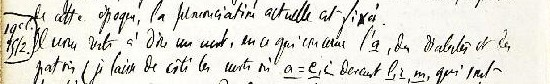 de cette époque, la prononciation actuelle est fixée.
19 cl.
25/2
Il nous reste à dire un mot, en ce qui concerne l'a, des dialectes et des
patois (je laisse de côté les mots où a = e, i devant l, n, m, qui sont